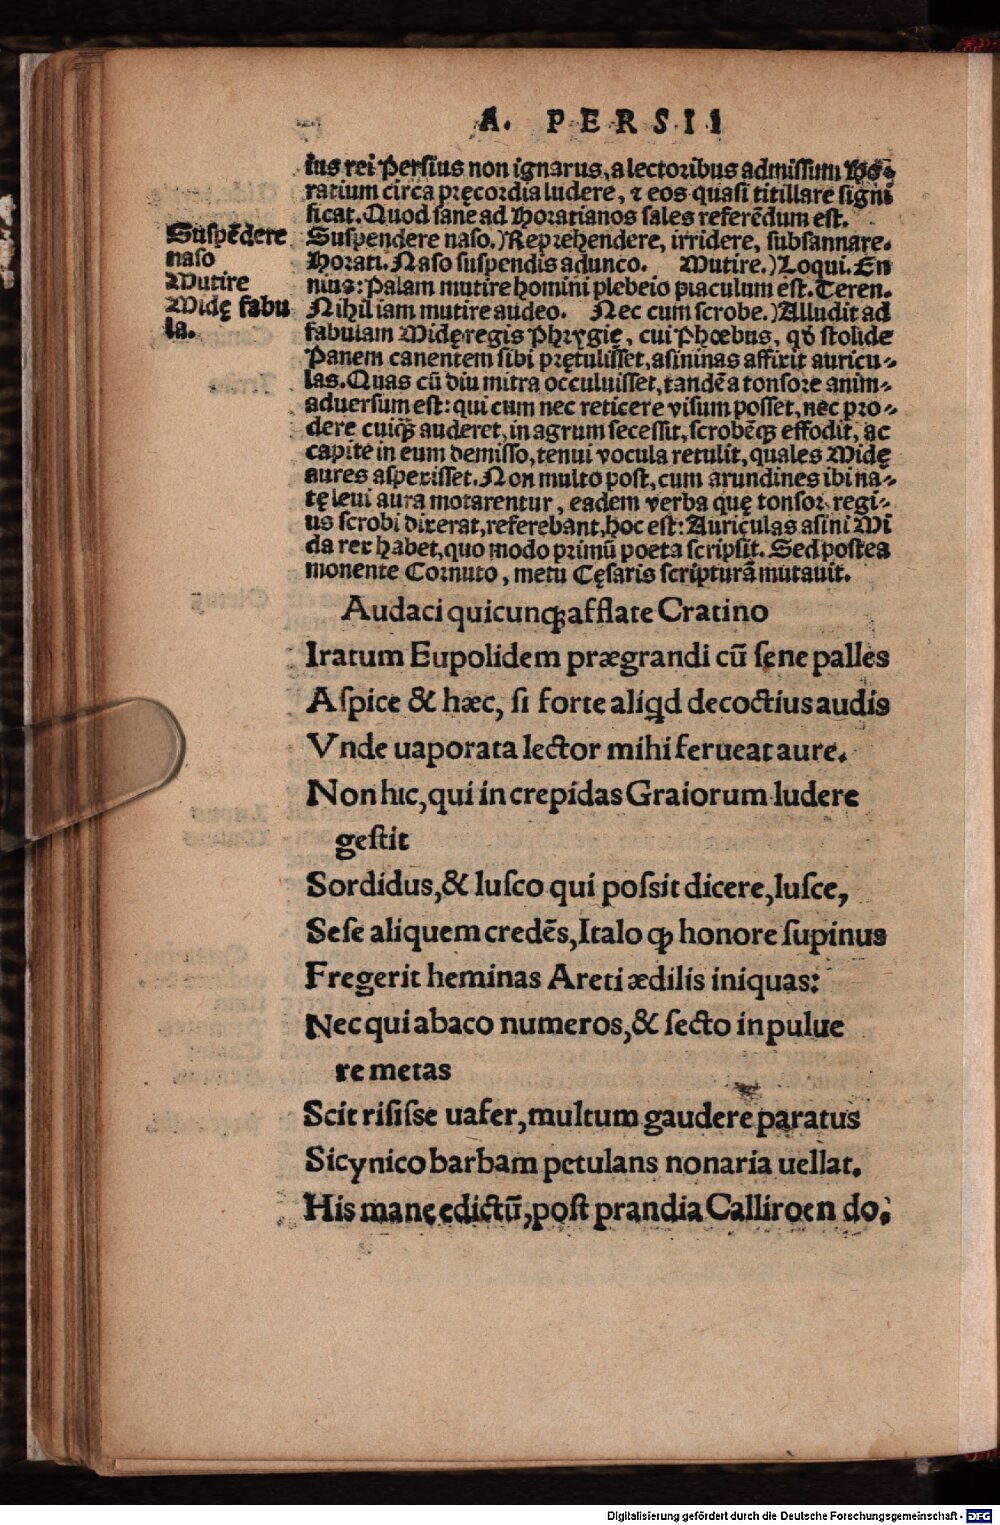 A. PERSII
ius rei Persius non ignarus, a lectoribus admissum Ho-
ratium circa pręcordia ludere, & eos quasi titillare signi
ficat. Quod sane ad Horatianos sales referēdum est.
Suspēdere
naso
Mutire
Midę fabu
la.
Suspendere naso.) Reprehendere, irridere, subsannare.
Horati. Naso suspendis adunco. Mutire.) Loqui. En
nius: Palam mutire homini plebeio piaculum est. Teren.
Nihil iam mutire audeo. Nec cum scrobe.) Alludit ad
fabulam Midę regis Phrygię, cui Phœbus, qď stolide
Panem canentem sibi prętulisset, asininas affixit auricu-
las. Quas cū diu mitra occuluisset, tandē a tonsore anim-
aduersum est: qui cum nec reticere visum posset, nec pro-
dere cuiqꝫ auderet, in agrum secessit, scrobēqꝫ effodit, ac
capite in eum demisso, tenui vocula retulit, quales Midę
aures aspexisset. Non multo post, cum arundines ibi na-
tę leui aura motarentur, eadem verba quę tonsor regi-
us scrobi dixerat, referebant, hoc est: Auriculas asini Mi
da rex habet, quo modo primū poeta scripsit. Sed postea
monente Cornuto, metu Cęsaris scripturā mutauit.
Audaci quicunqꝫ afflate Cratino
Iratum Eupolidem prægrandi cū sene palles
Aspice & hæc, si forte aliqd decoctius audis
Vnde uaporata lector mihi ferueat aure.
Non hic, qui in crepidas Graiorum ludere
gestit
Sordidus, & lusco qui possit dicere, lusce,
Sese aliquem credēs, Italo qꝫ honore supinus
Fregerit heminas Areti ædilis iniquas:
Nec qui abaco numeros, & secto in pulue
re metas
Scit risisse uafer, multum gaudere paratus
Si cynico barbam petulans nonaria uellat.
His mane edictū, post prandia Calliroen do.
Digitalisierung gefördert durch die Deutsche Forschungsgemeinschaft - DFG